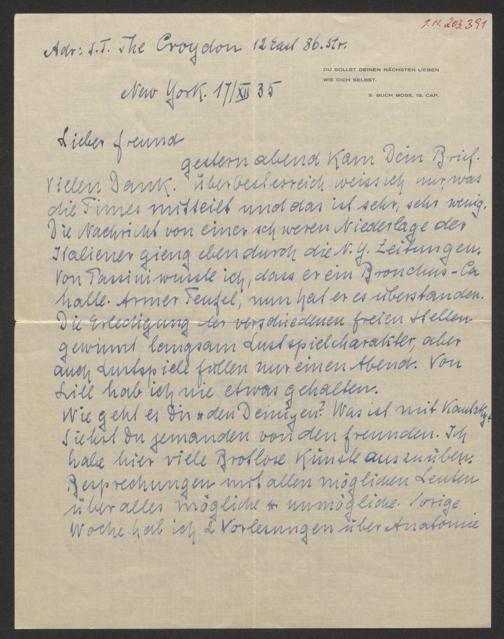 J.N. 203.391
Adr: z.Z. The Croydon 12 East 86. Str.
DU SOLLST DEINEN NÄCHSTEN LIEBEN
WIE DICH SELBST.
3. BUCH MOSE, 19. CAP.
New York. 17/XII 35
Lieber Freund
gestern abend kam Dein Brief.
Vielen Dank. Über Oesterreich weiss ich nur, was
die Times mitteilt und das ist sehr, sehr wenig.
Die Nachricht von einer schweren Niederlage der
Italiener gieng eben durch die N.Y. Zeitungen.
Von wusste ich, dass er ein Bronchus-Ca
hatte. Armer Teufel, nun hat er es überstanden.
Die Erledigung der verschiedenen freien Stellen
gewinnt langsam Lustspielcharakter, aber
auch Lustspiele füllen nur einen Abend. Von
hab ich nie etwas gehalten.
Wie geht es Dir u. den Deinigen? Was ist mit
Siehst Du jemanden von den Freunden. Ich
habe hier viele Brotlose Künste auszuüben.
Besprechungen mit allen möglichen Leuten
über alles mögliche u. unmögliche. Vorige
Woche hab ich 2 Vorlesungen über Anatomie